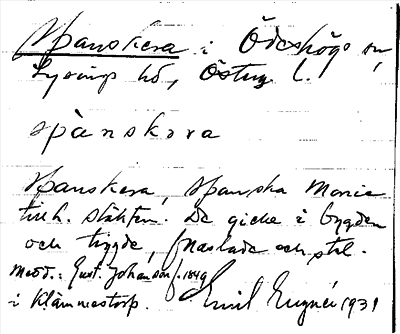 Spanskera i Ödeshögs sn,
Lysings hd, Östergl.
spànskəra
Spanskera, Spanska Marie
tillh. släkten. De gick i bygden
och tiggde, snaslade och stal.
Medd.: Gust. Johanson f. 1849
i Klämmestorp. Emil 1931